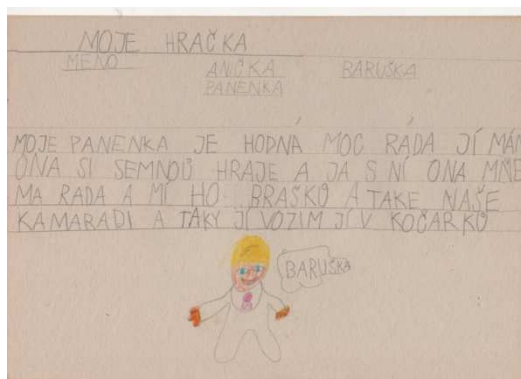 MOJE HRAČKA
MENO ANIČKA BARUŠKA
PANENKA
MOJE PANENKA JE HODNÁ MOC RÁDA JÍ MÁM
ONA SI SEMNOU HRAJE A JA S NÍ ONA MNĚ
MA RADA A MÍ HO BRAŠKO A TAKE NAŠE
KAMARADI A TAKY JÍ VOZIM JÍ V KOČARKO
BARUŠKA